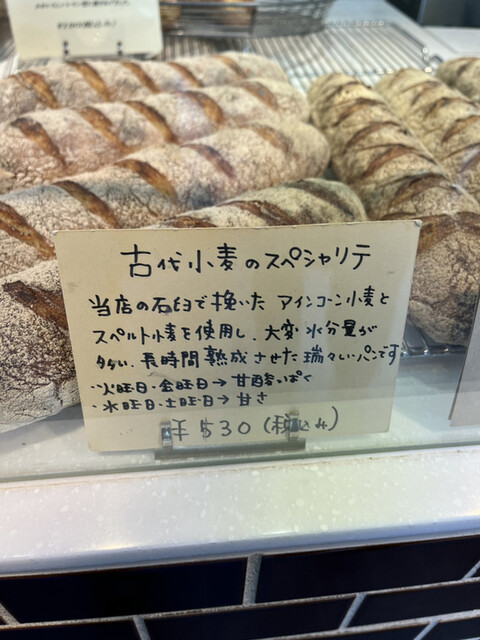 古代小麦のスペシャリテ
当店の石臼で挽いた アインコーン小麦と
スペルト小麦を使用し、大変水分量が
多い、長時間熟成させた瑞々しいパンです。
・火曜日・金曜日→甘酸っぱく
・水曜日・土曜日→甘さ
¥530(税込み)